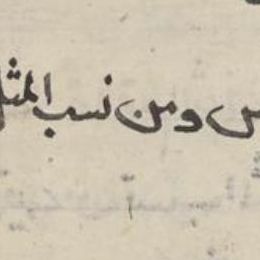 ومن نسب المثل